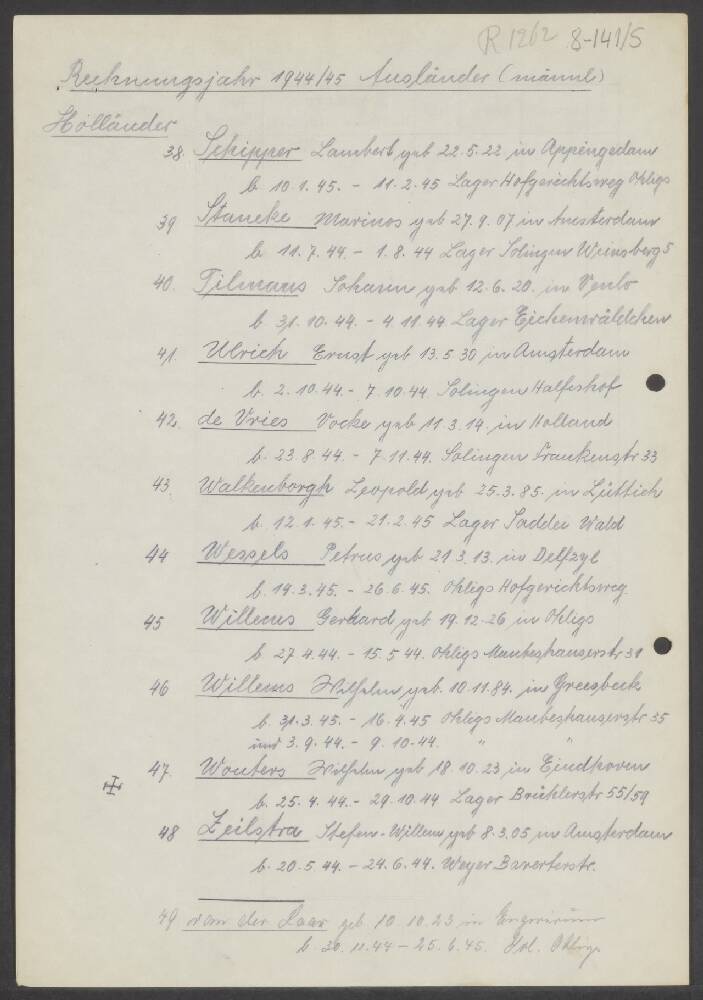 R 1262 8-141/5
Rechnungsjahr 1944/45 Ausländer (männl)
Holländer
38. Schipper Lambert geb 22.5.22 in Appingedam
b. 10.1.45. - 11.2.45 Lager Hofgerichtsweg Ohligs
39 Stancke Marinos geb 27.9.07 in Amsterdam
b. 11.7.44 - 1.8.44 Lager Solingen Weinsberg 5
40. Tilmans Johann geb 12.6.20. in Venlo
b. 31.10.44. - 4.11.44 Lager Eichenwäldchen
41. Ulrich Ernst geb 13.5.30 in Amsterdam
b. 2.10.44. - 7.10.44 Solingen Halfeshof
42. de Vries Vocke geb 11.3.14. in Holland
b. 23.8.44. - 7.11.44. Solingen Frankenstr 33
43. Walkenborgh Leopold geb 25.3.85. in Lüttich
b. 12.1.45. - 21.2.45 Lager Wald
44 Wessels Petrus geb 21.3.13. in Delfzyl
b. 14.3.45. - 26.6.45. Ohligs Hofgerichtsweg.
45 Willems Gerhard geb 19.12.26 in Ohligs
b. 27.4.44. - 15.5.44. Ohligs Maubeshauserstr 31
46 Willems Wilhelm geb. 10.11.84. in Greesbeck
b. 31.3.45. - 16.4.45 Ohligs Maubeshauserstr 35
und 3.9.44. - 9.10.44. " "
47. Wouters Wilhelm geb 18.10.23 in Eindhoven
b. 25.4.44. - 29.10.44 Lager Brühlerstr 55/59
48 Zeilstra Stefen-Willem geb 8.3.05 in Amsterdam
b. 20.5.44. - 24.6.44. Weyer Baverterstr.
49 van der Laar geb. 10.10.23 in
b. 30.11.44 - 25.6.45. Hol. Ohligs